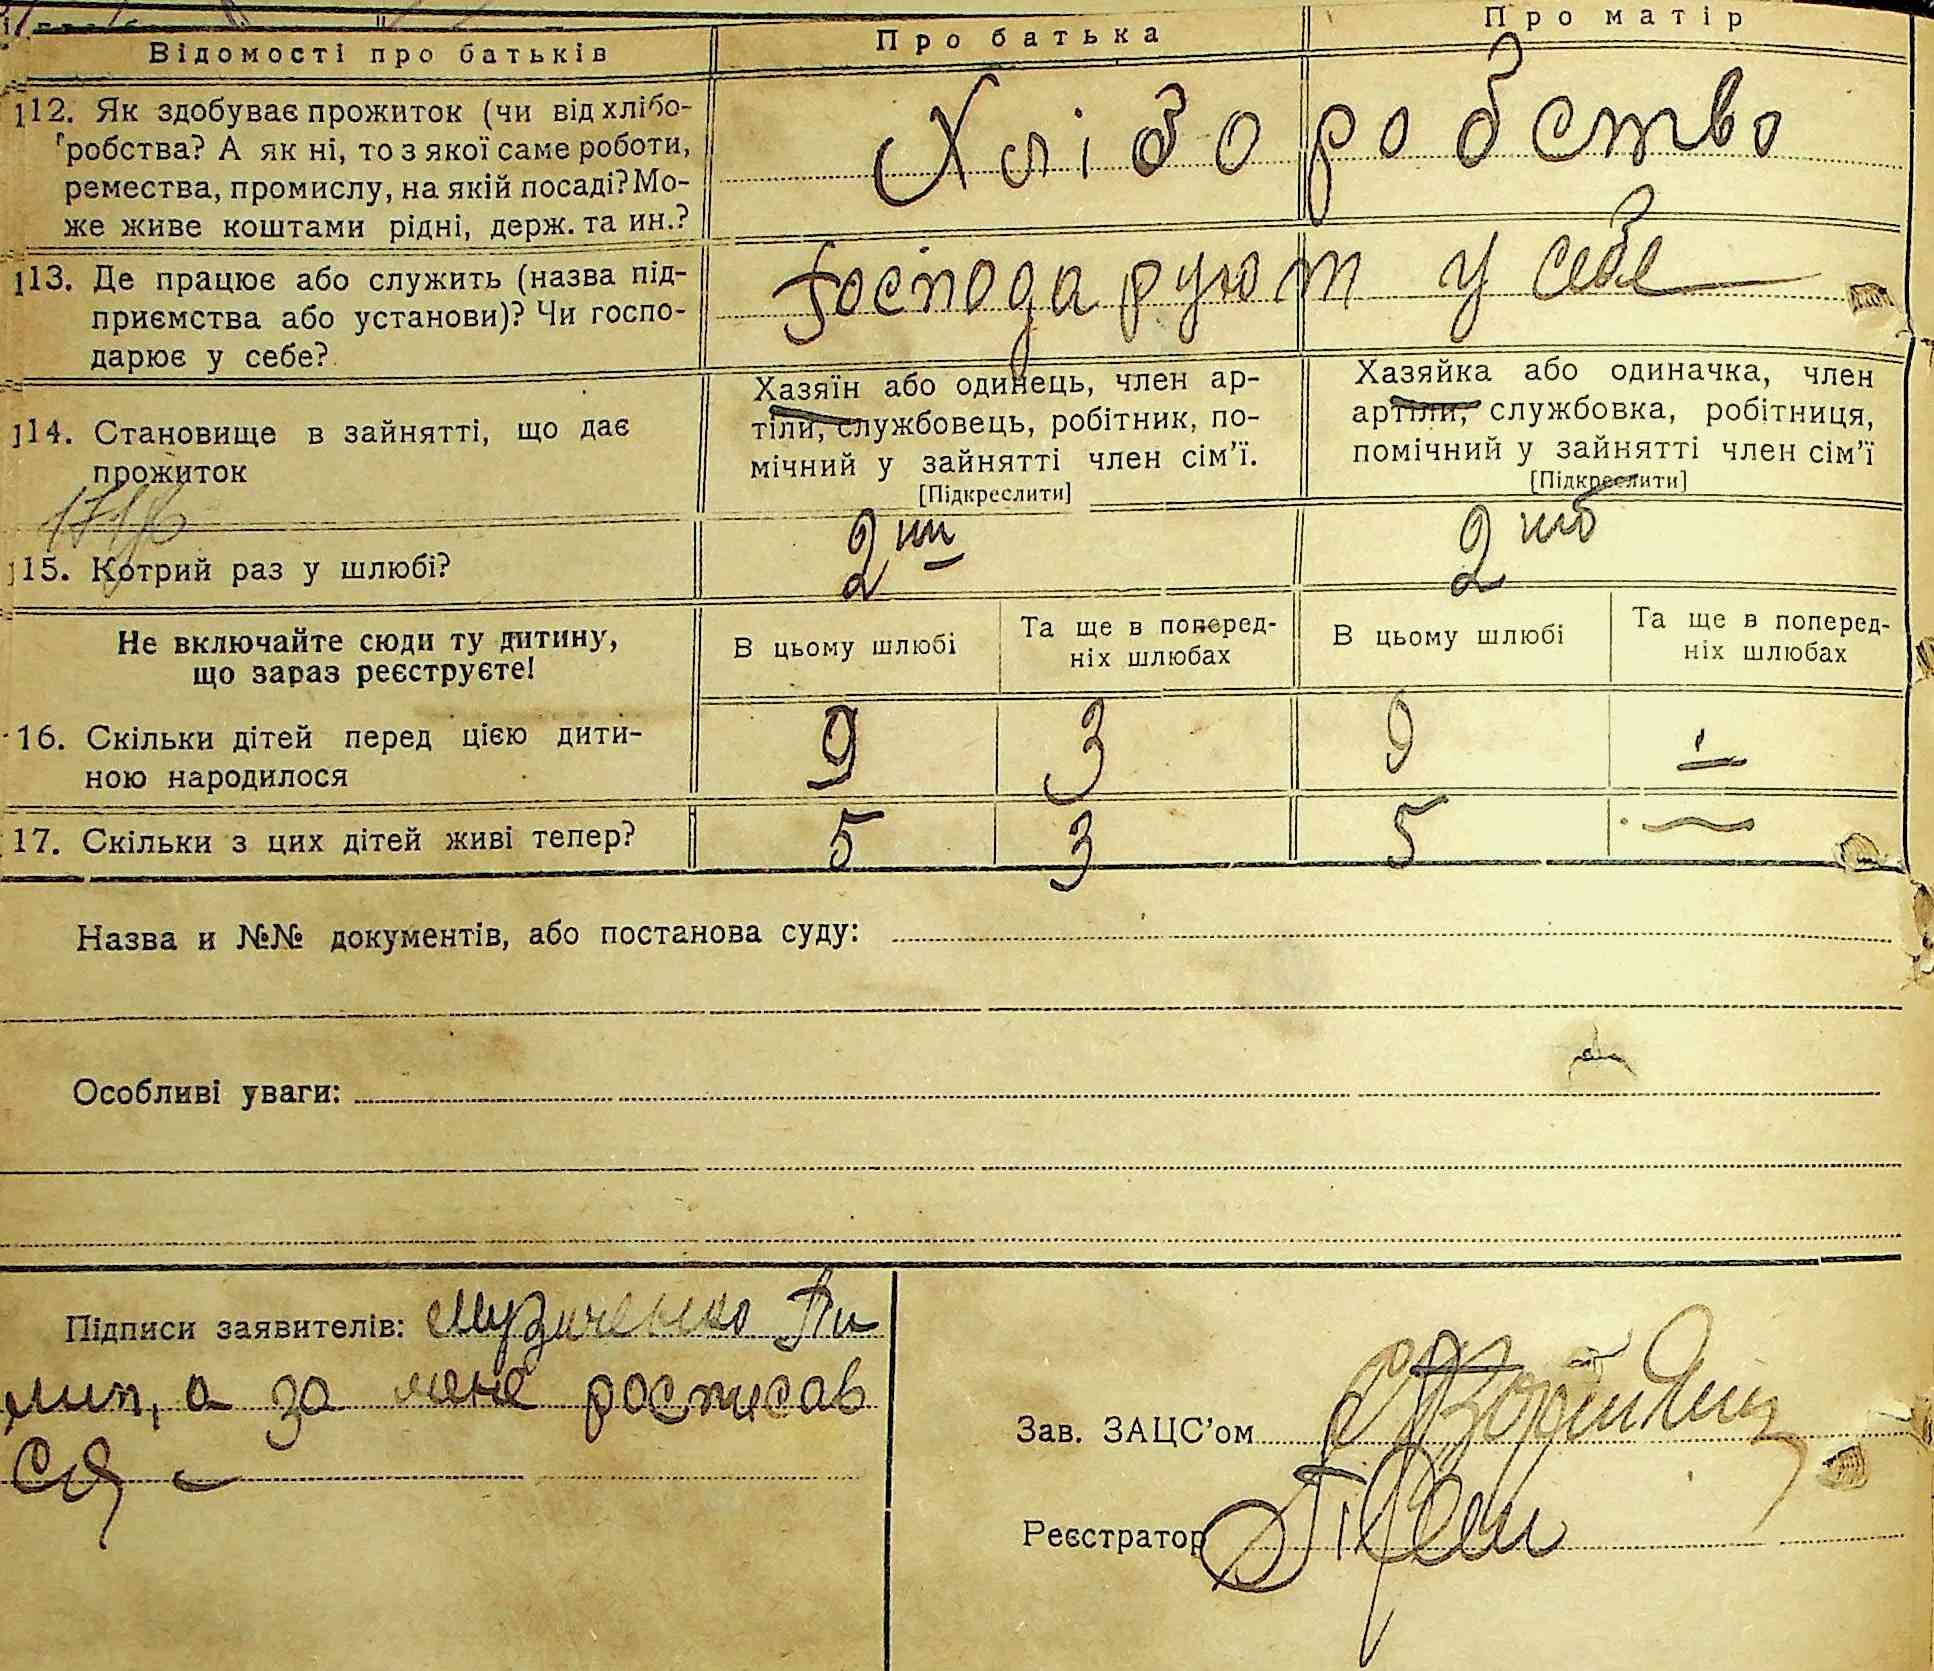 Відомості про батьків
Про батька
Про матір
12. Як здобуває прожиток (чи від хлібо-
робства? А як ні, то з якої саме роботи,
ремества, промислу, на якій посаді? Мо-
же живе коштами рідні, держ. та ин.?
Хліборобство
13. Де працює або служить (назва під-
приємства або установи)? Чи госпо-
дарює у себе?
Господарують у себе
14. Становище в зайнятті, що дає
прожиток
Хазяїн або одинець, член ар-
тіли, службовець, робітник, по-
мічний у зайнятті член сім'ї.
[Підкреслити]
Хазяйка або одиначка, член
артіли, службовка, робітниця,
помічний у зайнятті член сім'ї
[Підкреслити]
15. Котрий раз у шлюбі?
2
2
Не включайте сюди ту дитину,
що зараз реєструєте!
В цьому шлюбі
Та ще в поперед-
ніх шлюбах
В цьому шлюбі
Та ще в поперед-
ніх шлюбах
16. Скільки дітей перед цією дити-
ною народилося
9 3 9 –
17. Скільки з цих дітей живі тепер?
5 3 5 –
Назва и №№ документів, або постанова суду:
Особливі уваги:
Підписи заявителів: Музиченко Пи
лип, а за мене росписав
ся
Зав. ЗАЦС'ом
Реєстратор